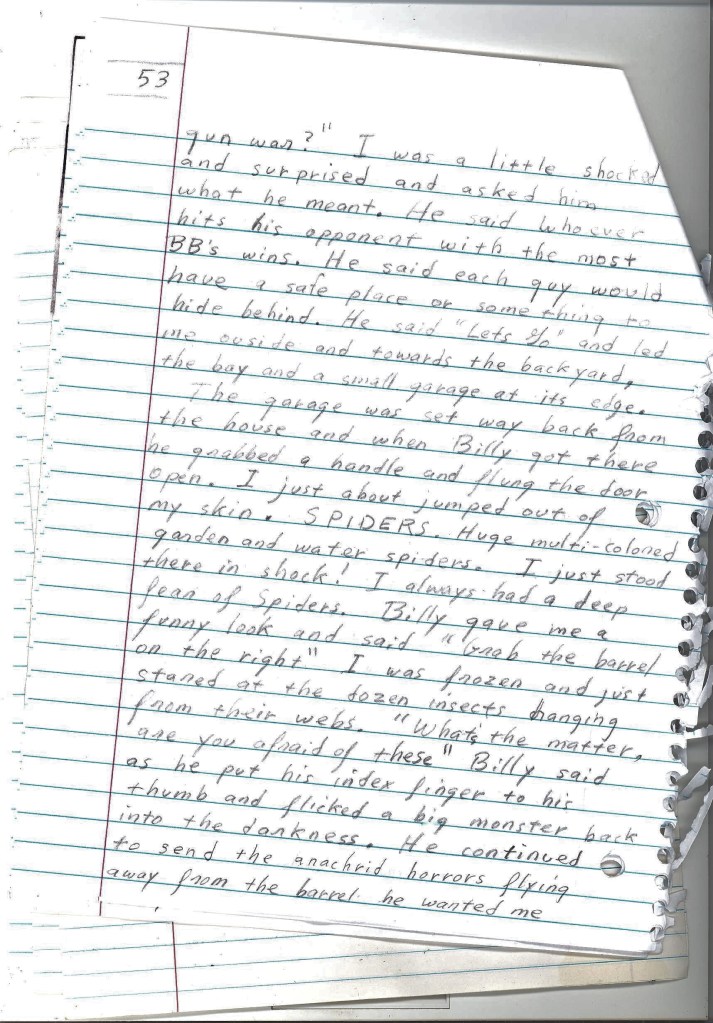 53
gun war?" I was a little shocked
and surprised and asked him
what he meant. He said who ever
hits his opponent with the most
BB's wins. He said each guy would
have a safe place or some thing to
hide behind. He said "Lets Go" and led
me ouside and towards the backyard,
the bay and a small garage at its edge.
The garage was set way back from
the house and when Billy got there
he grabbed a handle and flung the door
open. I just about jumped out of
my skin. SPIDERS. Huge multi-colored
garden and water spiders. I just stood
there in shock! I always had a deep
fear of Spiders. Billy gave me a
funny look and said "Grab the barrel
on the right" I was frozen and just
stared at the dozen insects hanging
from their webs. "What's the matter,
are you afraid of these" Billy said
as he put his index finger to his
thumb and flicked a big monster back
into the darkness. He continued
to send the anachrid horrors flying
away from the barrel he wanted me